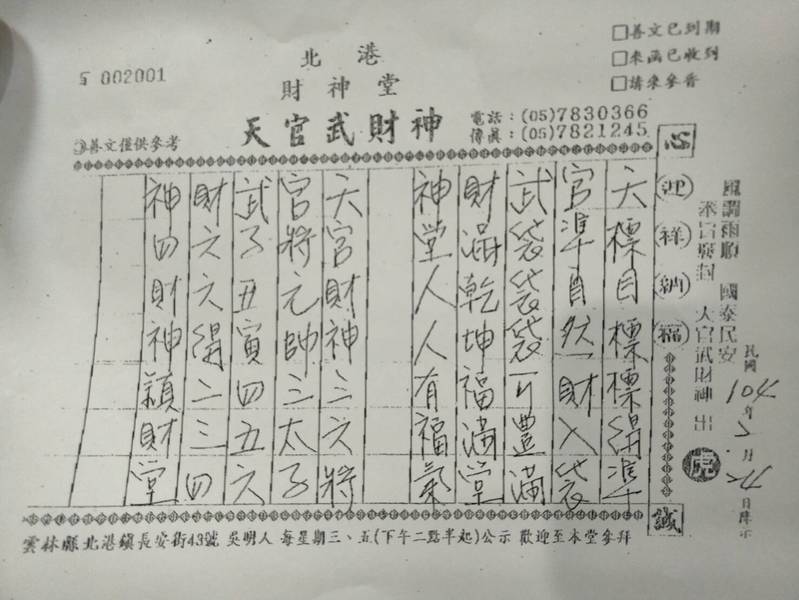 5 002001
北港
財神堂
天官武財神
善文僅供參考
電話:(05)7830366
傳真:(05)7821245
□善文已到期
□來函已收到
□請來參香
心
迎祥納福
誠
風調雨順 國泰民安
天官武財神 出
民國104年 月 日降示
虎
天標目標標得準
官準自然財入袋
武袋袋袋可豐滿
財滿乾坤福滿堂
神堂人人有福氣
天官財神三六將
官將元帥三太子
武子丑寅四五六
財六六得二三四
神四財神顯財堂
雲林縣北港鎮長安街43號 吳明人 每星期三、五(下午二點半起)公示 歡迎至本堂參拜